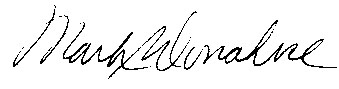 Mark Donahue